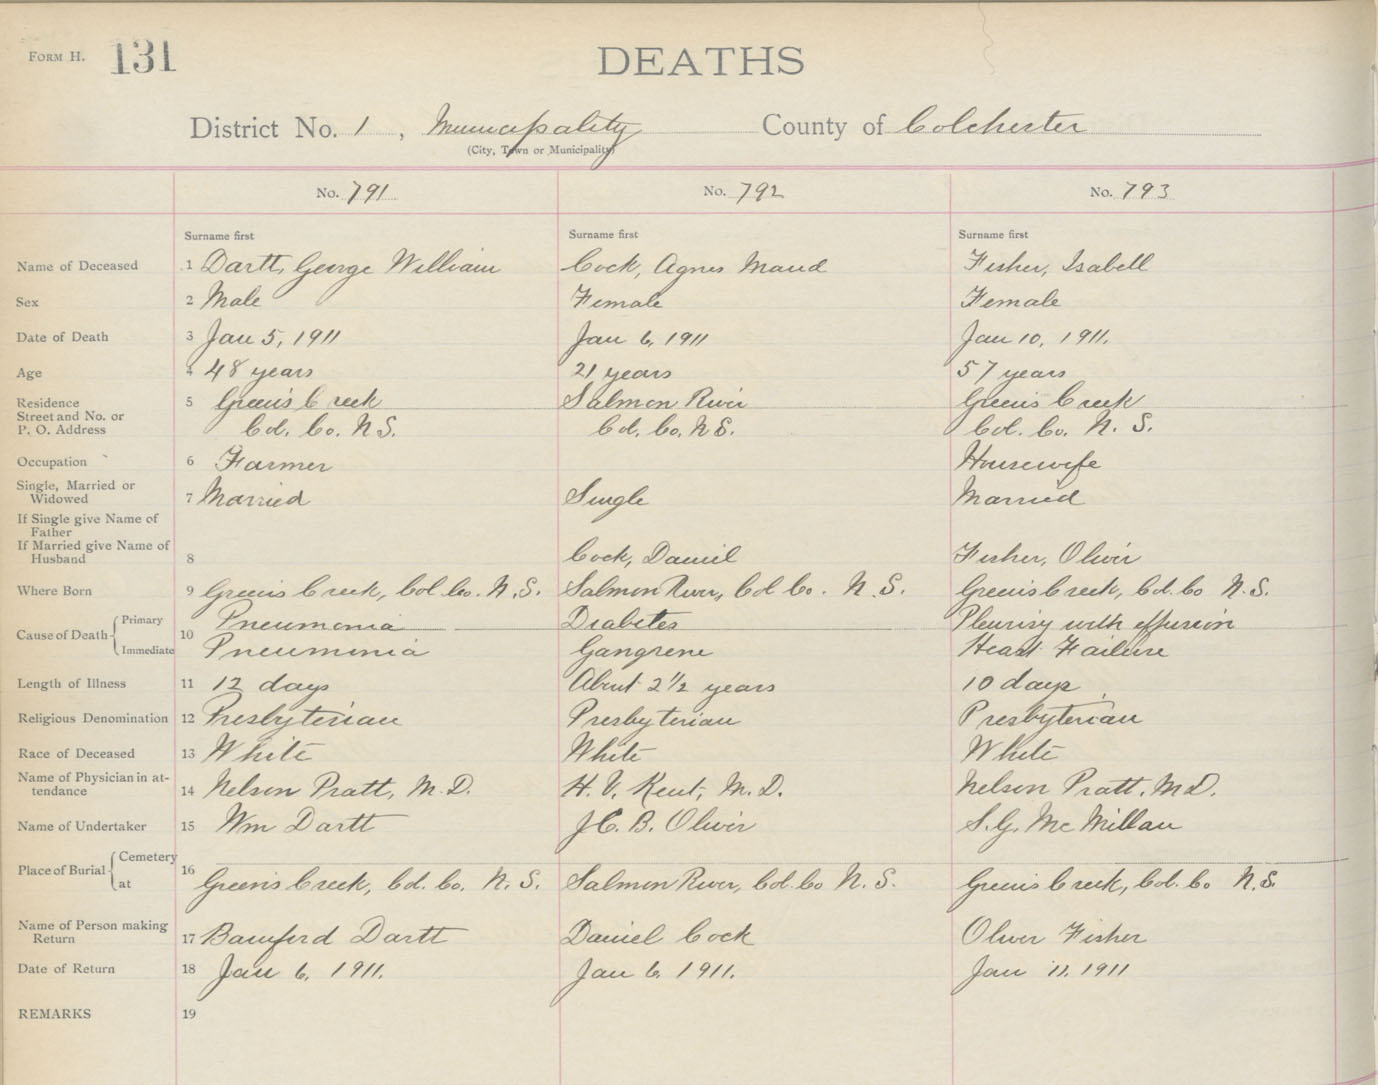 FORM H. 131
DEATHS
District No. 1, Municipality County of Colchester
(City, Town or Municipality)
No. 791 No. 792 No. 793
Surname first Surname first Surname first
Name of Deceased 1 Dartt, George William Cock, Agnes Maud Fisher, Isabell
Sex 2 Male Female Female
Date of Death 3 Jan 5, 1911 Jan 6, 1911 Jan 10, 1911.
Age 4 48 years 21 years 57 years
Residence 5 Green's Creek Salmon River Green's Creek
Street and No. or
P. O. Address Col. Co. N.S. Col. Co. N.S. Col. Co. N. S.
Occupation 6 Farmer Housewife
Single, Married or
Widowed 7 Married Single Married
If Single give Name of
Father
If Married give Name of
Husband 8 Cock, Daniel Fisher, Oliver
Where Born 9 Green's Creek, Col. Co. N.S. Salmon River, Col Co. N.S. Green's Creek, Col. Co N.S.
Cause of Death Primary Pneumonia Diabetes Pleurisy with effusion
10 Immediate Pneumonia Gangrene Heart Failure
Length of Illness 11 12 days About 2 1/2 years 10 days
Religious Denomination 12 Presbyterian Presbyterian Presbyterian
Race of Deceased 13 White White White
Name of Physician in at-
tendance 14 Nelson Pratt, M.D. H. V. Kent, M.D. Nelson Pratt, M.D.
Name of Undertaker 15 Wm Dartt J.C. B. Oliver S.G. McMillan
Place of Burial Cemetery 16
at Green's Creek, Col. Co. N.S. Salmon River, Col. Co N.S. Green's Creek, Col. Co N.S.
Name of Person making
Return 17 Bamford Dartt Daniel Cock Oliver Fisher
Date of Return 18 Jan 6, 1911. Jan 6, 1911. Jan 11, 1911
REMARKS 19